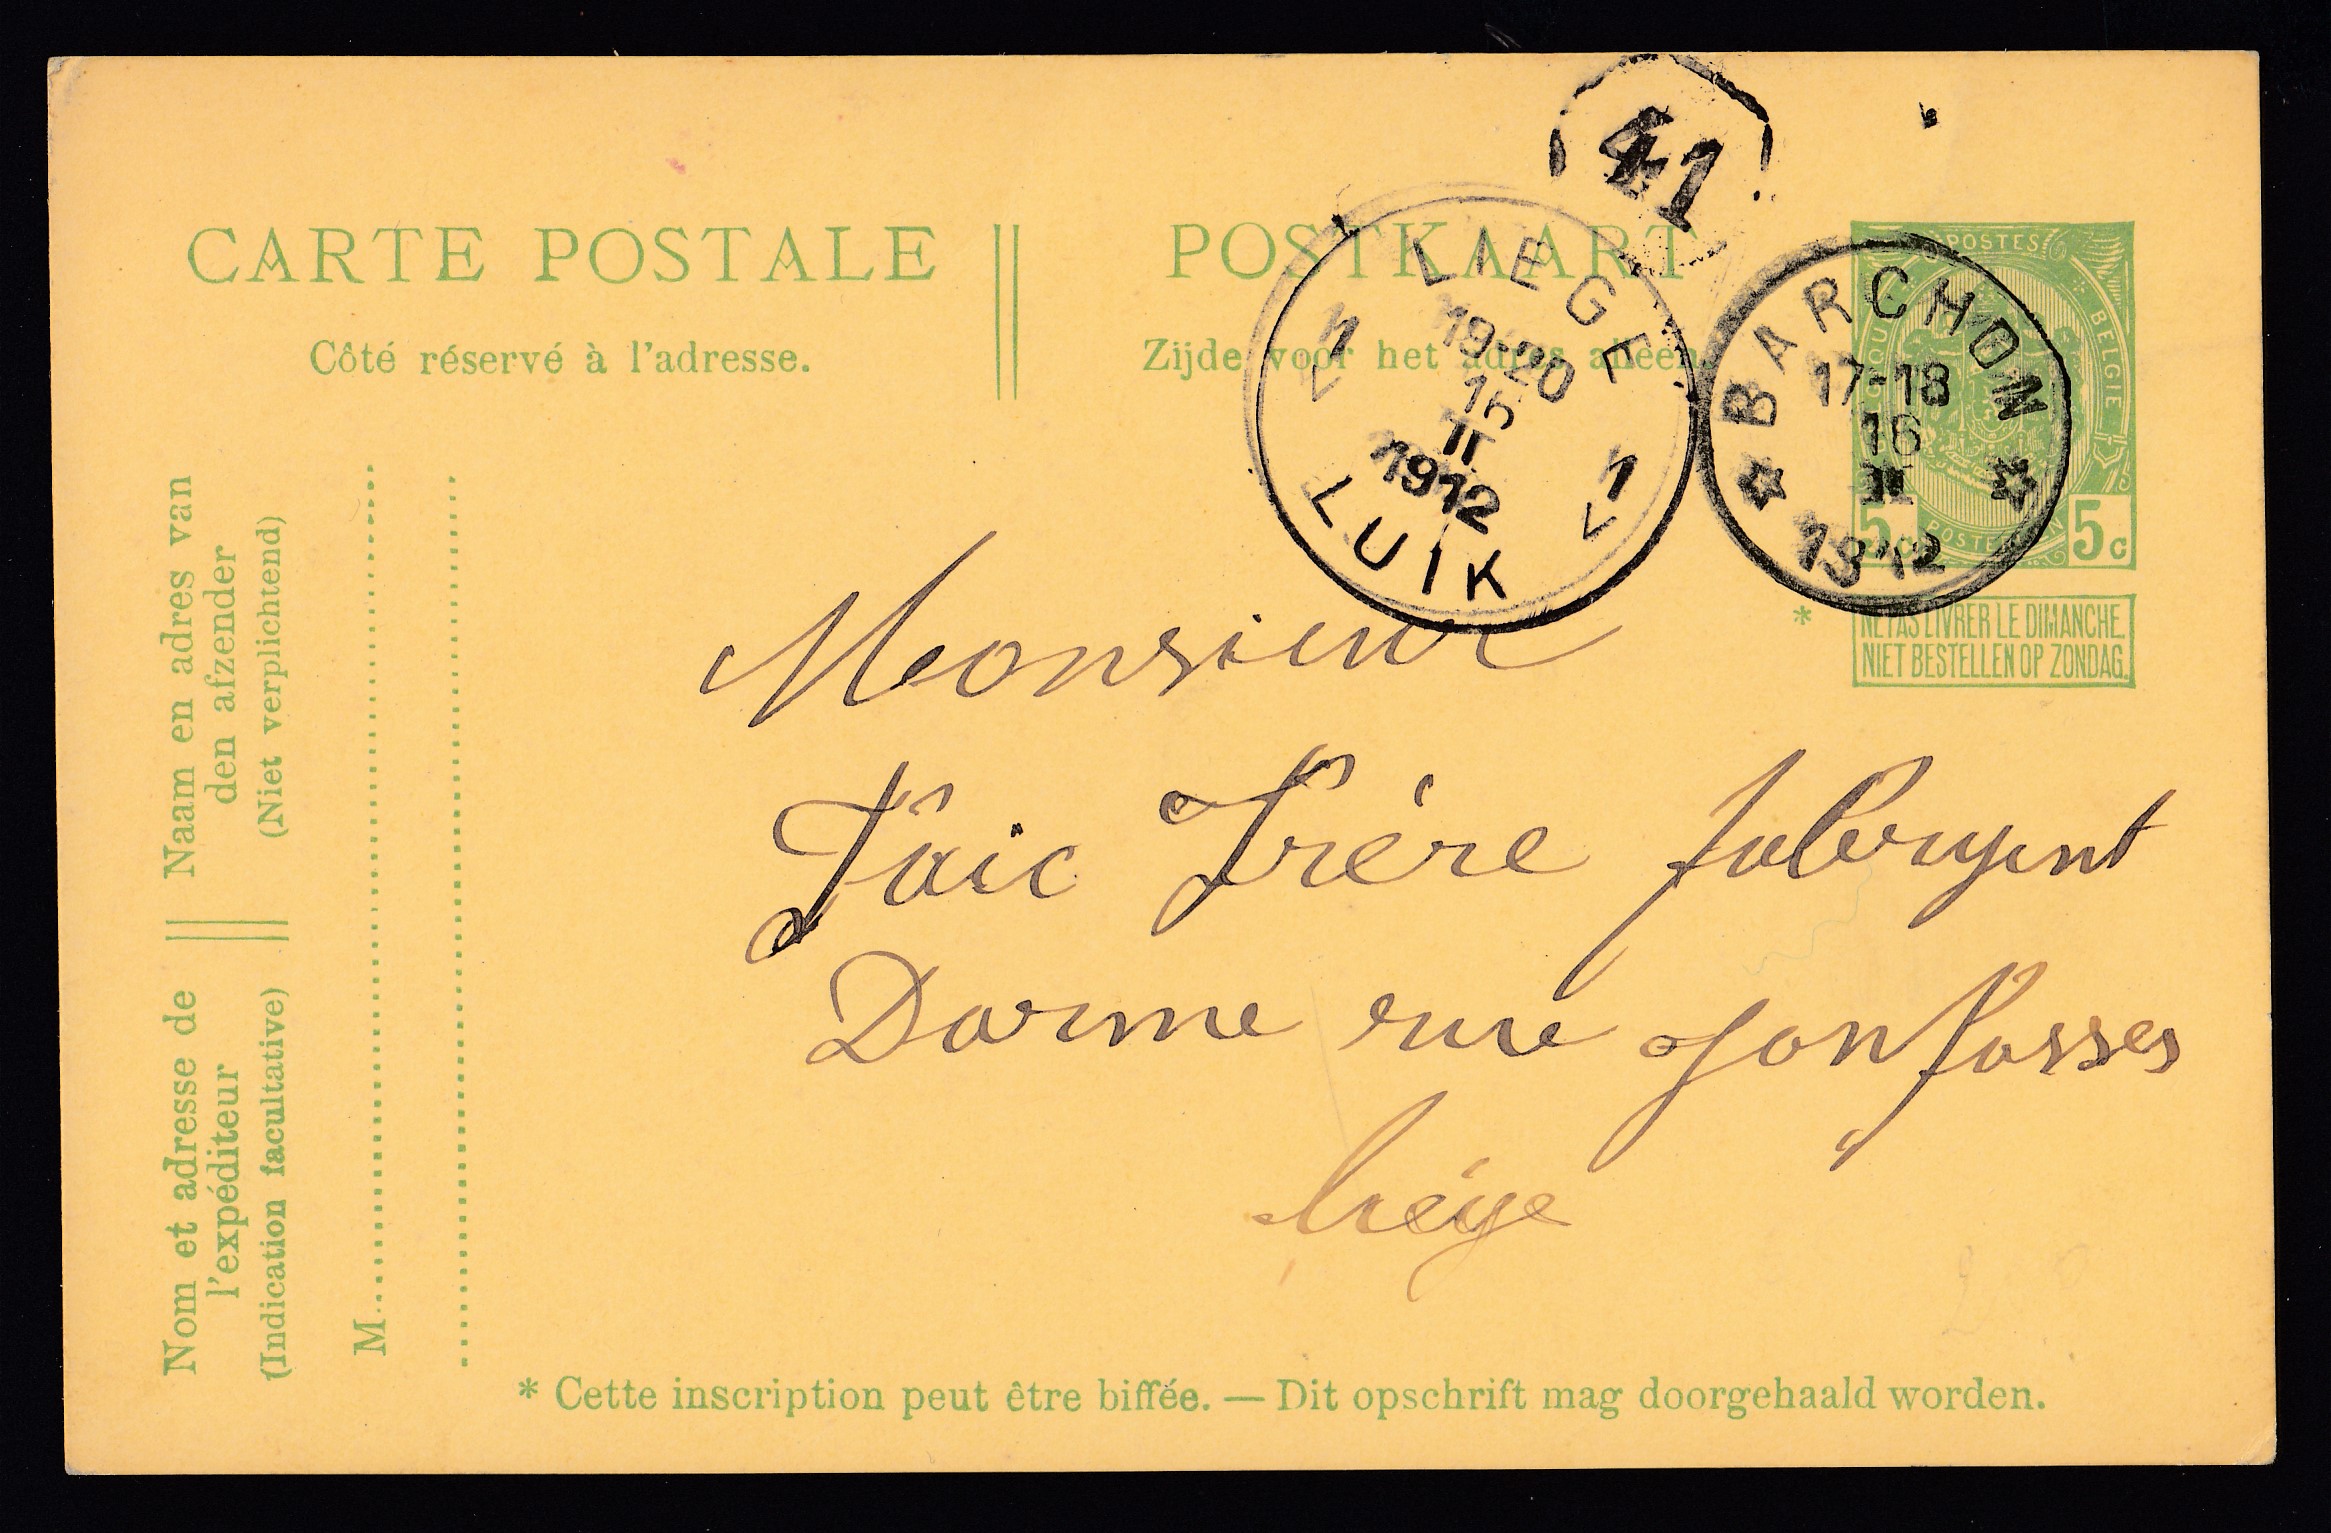 CARTE POSTALE
POSTKAART
Côté réservé à l'adresse.
Zijde voor het adres alleen.
41
LIEGE
19-20
15
II
1912
LUIK
1 1
V V
BARCHON
17-18
16
II
1912
POSTES
BELGIE
5c 5c
* NE PAS LIVRER LE DIMANCHE.
NIET BESTELLEN OP ZONDAG.
Naam en adres van
den afzender
(Niet verplichtend)
Nom et adresse de
l'expéditeur
(Indication facultative)
M
Monsieur
Frère
rue Jonfosses
Liége
* Cette inscription peut être biffée. — Dit opschrift mag doorgehaald worden.